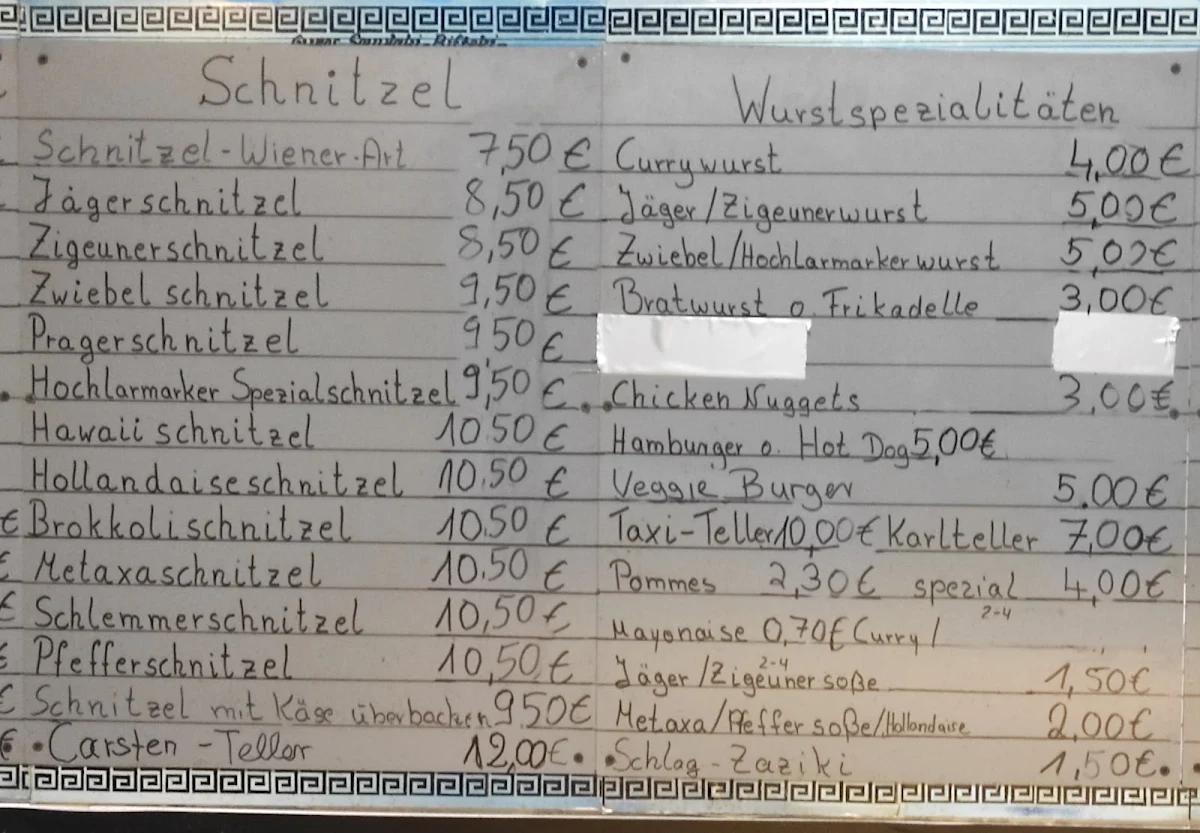 Schnitzel
Schnitzel-Wiener-Art 7,50 €
Jägerschnitzel 8,50 €
Zigeunerschnitzel 8,50 €
Zwiebelschnitzel 9,50 €
Pragerschnitzel 9,50 €
Hochlarmarker Spezialschnitzel 9,50 €
Hawaiischnitzel 10.50 €
Hollandaiseschnitzel 10.50 €
Brokkolischnitzel 10.50 €
Metaxaschnitzel 10.50 €
Schlemmerschnitzel 10,50 €
Pfefferschnitzel 10,50 €
Schnitzel mit Käse überbacken 9.50 €
Carsten-Teller 12,00€
Wurstspezialitäten
Currywurst 4,00€
Jäger/Zigeunerwurst 5,00€
Zwiebel/Hochlarmarkerwurst 5,00€
Bratwurst o. Frikadelle 3,00€
Chicken Nuggets 3,00€
Hamburger o. Hot Dog 5,00€
Veggie Burger 5.00€
Taxi-Teller 10,00€ Karlteller 7,00€
Pommes 2,30€ spezial 4,00€
2-4
Mayonaise 0,70€ Curry/
2-4
Jäger/Zigeunersoße 1,50€
Metaxa/Pfeffersoße/Hollandaise 2,00€
Schlag-Zaziki 1,50€